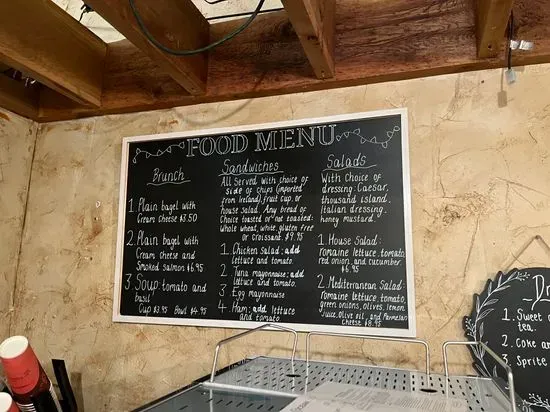 FOOD MENU
Brunch
1. Plain bagel with
Cream Cheese $3.50
2. Plain bagel with
Cream Cheese and
Smoked salmon $6.95
3 Soup: tomato and
basil
Cup $3.95 Bowl $4.95
Sandwiches
All Served with choice of
side of chips (imported
from Ireland), fruit cup, or
house salad. Any bread of
Choice toasted or not toasted:
Whole wheat, white, gluten free
or croissant. $9.95
1. Chicken salad: add
lettuce and tomato.
2 Tuna mayonnaise: add
lettuce and tomato.
3 Egg mayonnaise
4 Ham: add lettuce
and tomato
Salads
With Choice of
dressing: Caesar,
thousand island,
Italian dressing,
honey mustard.
1 House Salad:
romaine lettuce, tomato,
red onion, and cucumber
$6.95
2. Mediterranean Salad:
romaine lettuce, tomato,
green onions, olives, lemon
Juice, Olive oil, and Parmesan
Cheese $8.95
1. Sweet
tea.
2. Coke
3. Sprite